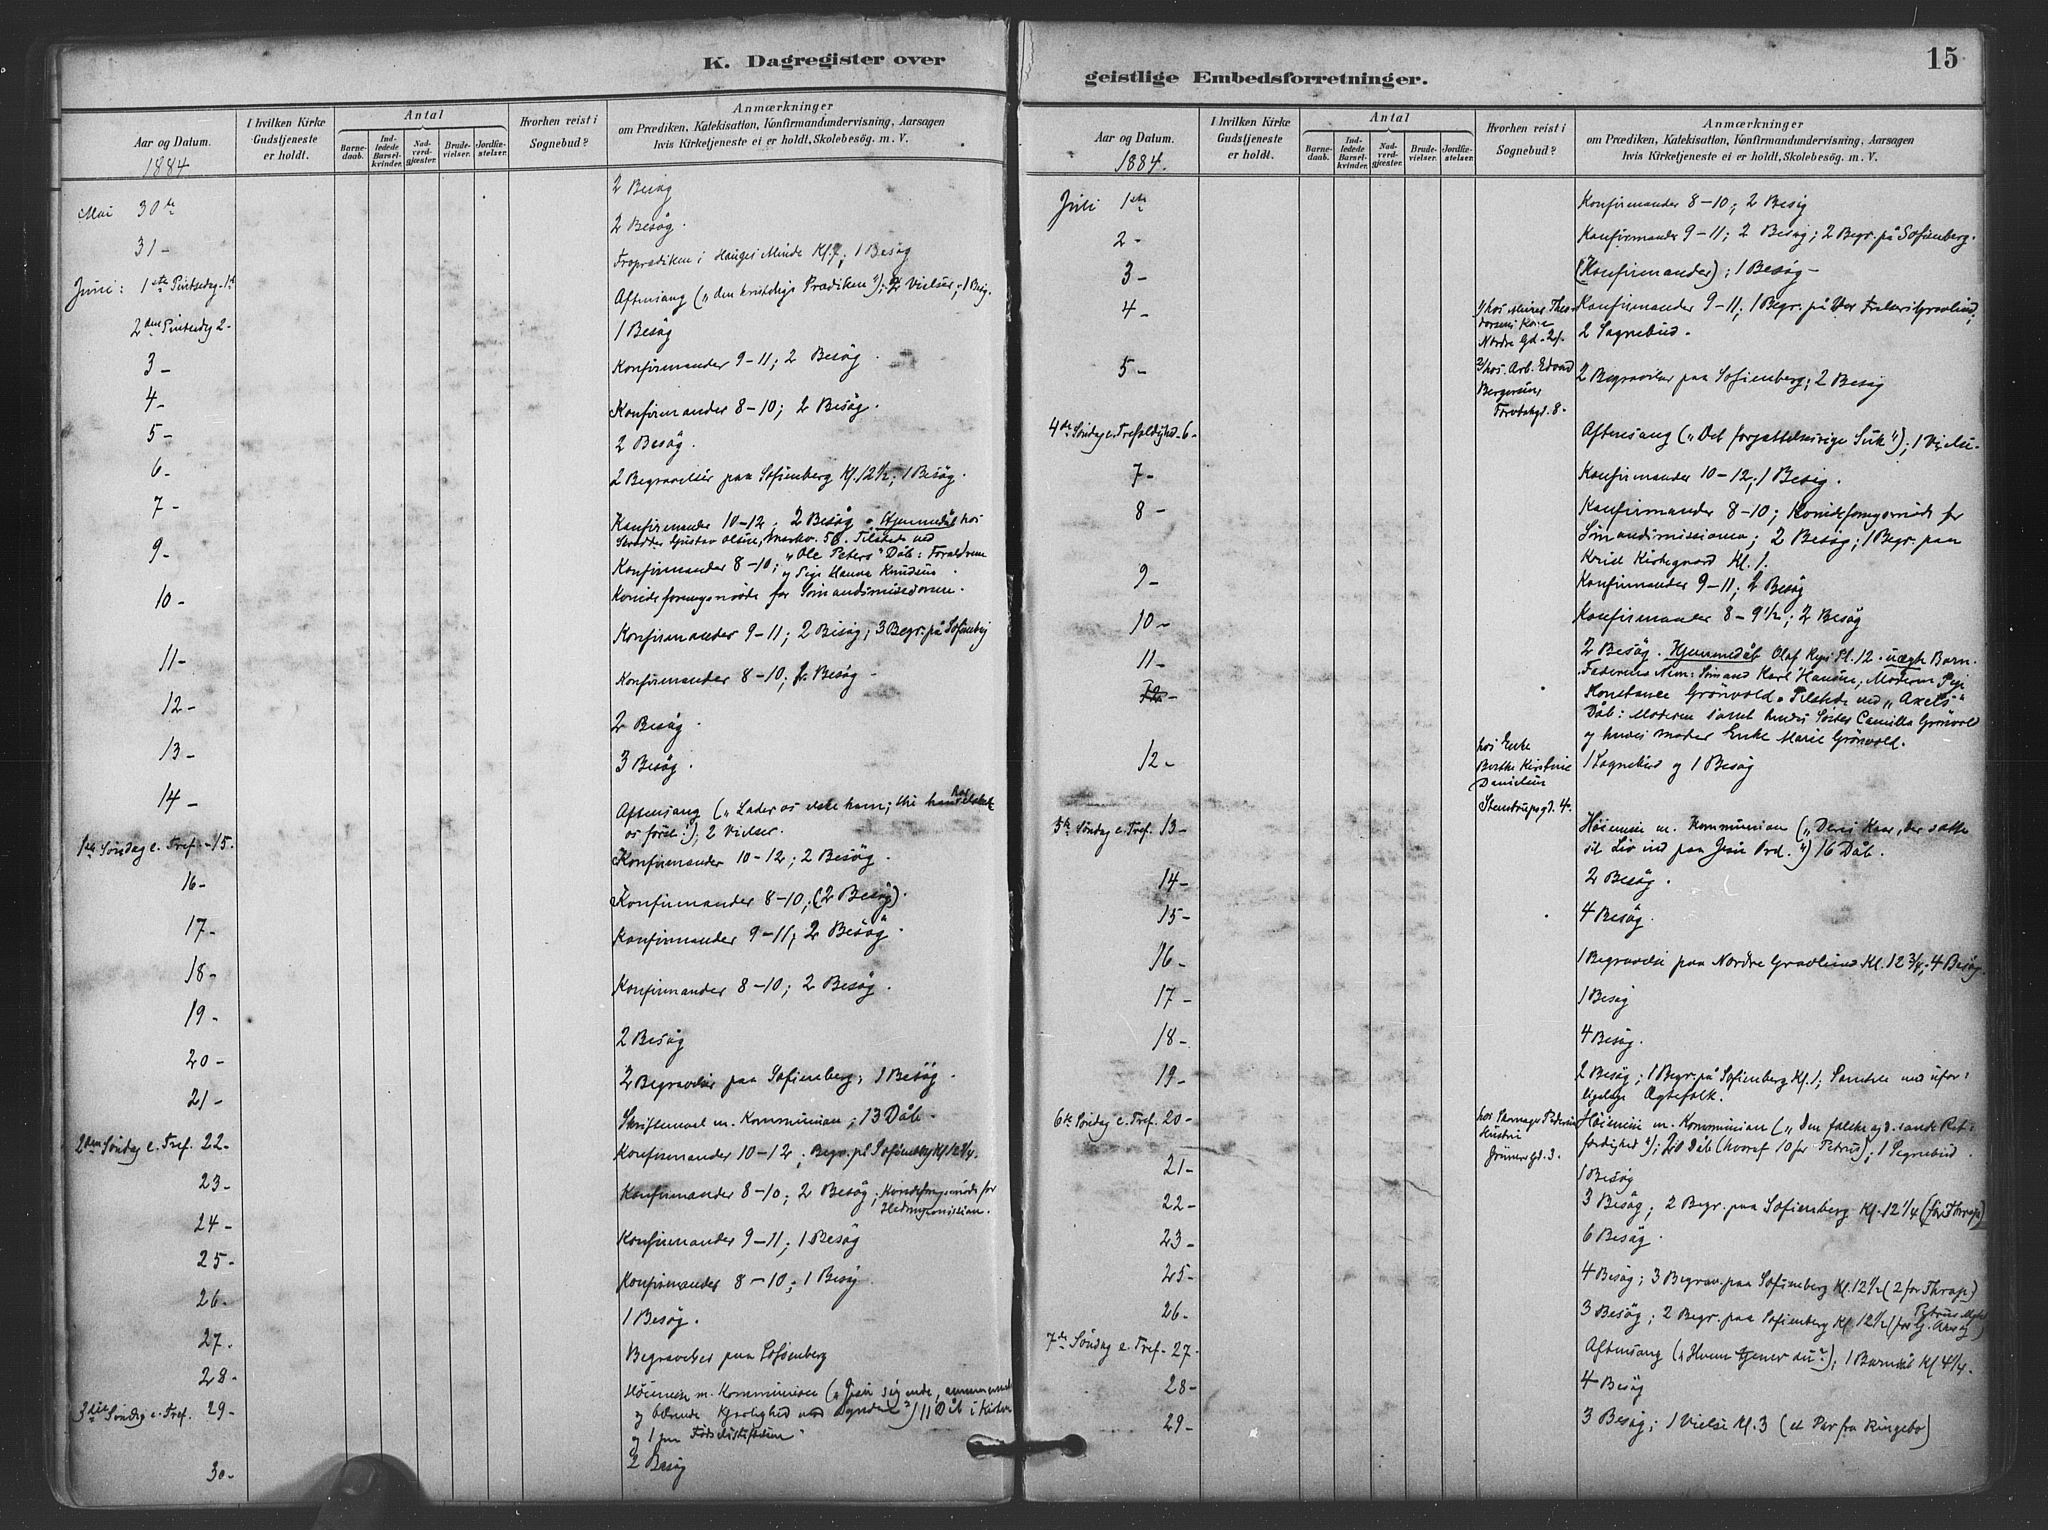 K. Dagregister over
Aar og Datum.
1884
I hvilken Kirke Gudstjeneste er holdt.
Antal
Barnedaab.
Indledede Barselkvinder.
Nadverdgjester.
Brudevielser.
Jordfæstelser.
Hvorhen reist i Sognebud?
Anmærkninger
om Prædiken, Katekisation, Konfirmandundervisning, Aarsagen
hvis Kirketjeneste ei er holdt, Skolebesög. m. V.
Mai 30te 2 Besøg
31- 2 Besög.
Juni: 1ste Pintsedag Froprædiken i Hauges Minde Kl. 7; 1 Besög
2den Pintsedag 2- Aftensang („den kristelige Prædiken"); 2 Vielser; 1 Besøg.
3- 1 Besög
4- Konfirmander 9-11; 2 Besøg.
5- Konfirmander 8-10; 2 Besög.
6- 2 Besög.
7- 2 Begravelser paa Sofienberg Kl. 12½; 1 Besög.
9- Konfirmander 10-12; 2 Besøg. Hjemmedåb hos
Skrædder Gustav Olsen, Markv. 56. Tilstede ved
„Ole Peters" Dåb: Forældrene
og Pige Hanna Knudsen.
10- Konfirmander 8-10;
Kvindeforeningsmøde for Sömandsmissionen.
11- Konfirmander 9-11; 2 Besøg; 3 Begr. på Sofienberg
12- Konfirmander 8-10; Besög.
13- 2 Besög.
14- 3 Besög.
1ste Søndag e. Tref. 15. Aftensang („Lader os elske ham; thi han har elsket
os først."); 2 Vielser.
16- Konfirmander 10-12; 2 Besög.
17- Konfirmander 8-10; (2 Besög).
18- Konfirmander 9-11; 2 Besög.
19- Konfirmander 8-10; 2 Besög.
20- 2 Besøg
21- 2 Begravelser paa Sofienberg; 1 Besög.
2den Søndag e. Tref. 22- Skriftemaal m. Kommunion; 13 Dåb.
23- Konfirmander 10-12; Begr. på Sofienberg Kl 12¼.
24- Konfirmander 8-10; 2 Besög; Kvindeforeningsmøde for
Hedningemission.
25- Konfirmander 9-11; 1 Besøg
26- Konfirmander 8-10; 1 Besøg
27. 1 Besøg.
28- Begravelser paa Sofienberg
3die Søndag e. Tref. 29- Höimesse m. Kommunion
og bærende Kjærlighed mod Synderen") 11 Dåb i Kirken
og 1 paa Fødselsstiftelsen.
30- 2 Besøg
geistlige Embedsforretninger.
15
Aar og Datum.
1884.
I hvilken Kirke Gudstjeneste er holdt.
Antal
Barnedaab.
Indledede Barselkvinder.
Nadverdgjester.
Brudevielser.
Jordfæstelser.
Hvorhen reist i Sognebud?
Anmærkninger
om Prædiken, Katekisation, Konfirmandundervisning, Aarsagen
hvis Kirketjeneste ei er holdt, Skolebesög. m. V.
Juli 1ste Konfirmander 8-10; 2 Besøg
2- Konfirmander 9-11; 2 Besøg; 2 Begr. på Sofienberg.
3- (Konfirmander); 1 Besøg-
4- 1) hos Murer Theodorsens Kone
Nordre Gd. 21.
Konfirmander 9-11; 1 Begr. på Vor Frelsers Gravlund;
2 Sognebud.
5- 2) hos Arb. Edvard
Bergersen,
8.
2 Begravelser paa Sofienberg; 2 Besøg
4de Søndag e. Trefoldighed 6- Aftensang 1 Vielse.
7- Konfirmander 10-12; 1 Besøg.
8- Konfirmander 8-10; Kvindeforeningsmøde for
Sömandsmissionen; 2 Besög; 1 Begr. paa
Krist Kirkegaard Kl. 1.
9- Konfirmander 9-11; 2 Besög
10- Konfirmander 8-9½; 2 Besög
11- 2 Besög. Hjemmedåb Olaf Ryes Pl. 12. uægte Barn.
Faderens Navn: Sömand Karl Hansen; Moderen Pige
Konstance Grönvold. Tilstede ved „Axels"
Dåb: Moderen samt hendes Søster Camilla Grönvold
og hendes Moder Enke Marie Grönvold.
12-
12- hos Enke
Berthe Kirstine
Danielsen
Stenstrupsgd. 4.
1 Sognebud og 1 Besøg
5te Søndag e. Tref. 13- Höimesse m. Kommunion 16 Dåb.
14- 2 Besøg.
15- 4 Besøg.
16- 1 Begravelse paa Nordre Gravlund Kl. 12¾; 4 Besøg.
17- 1 Besøg
18- 4 Besøg.
19- 2 Besøg; 1 Begr. på Sofienberg Kl. 1; Samtale med uforligelige Ægtefolk.
6te Søndag e. Tref. 20-
Hustru
3.
Höimesse m. Kommunion („Den falske og d. sande Retfærdighed"); 20 Dåb (hvoraf 10 for Petrus); 1 Sognebud.
21- 1 Besøg
22- 3 Besøg; 2 Begr. paa Sofienberg Kl. 12¼ (for Thrap)
23- 6 Besøg.
25- 4 Besøg; 3 Begrav. paa Sofienberg Kl. 12½ (2 for Thrap)
26- 3 Besög; 2 Begr. paa Sofienberg Kl. 12½
7de Søndag e. Tref. 27- Aftensang („Hvem tjener du?"); 1 Barnedåb Kl 4¼.
28- 4 Besög
29- 3 Besög; 1 Vielse Kl. 3 (et Par fra Ringebo)